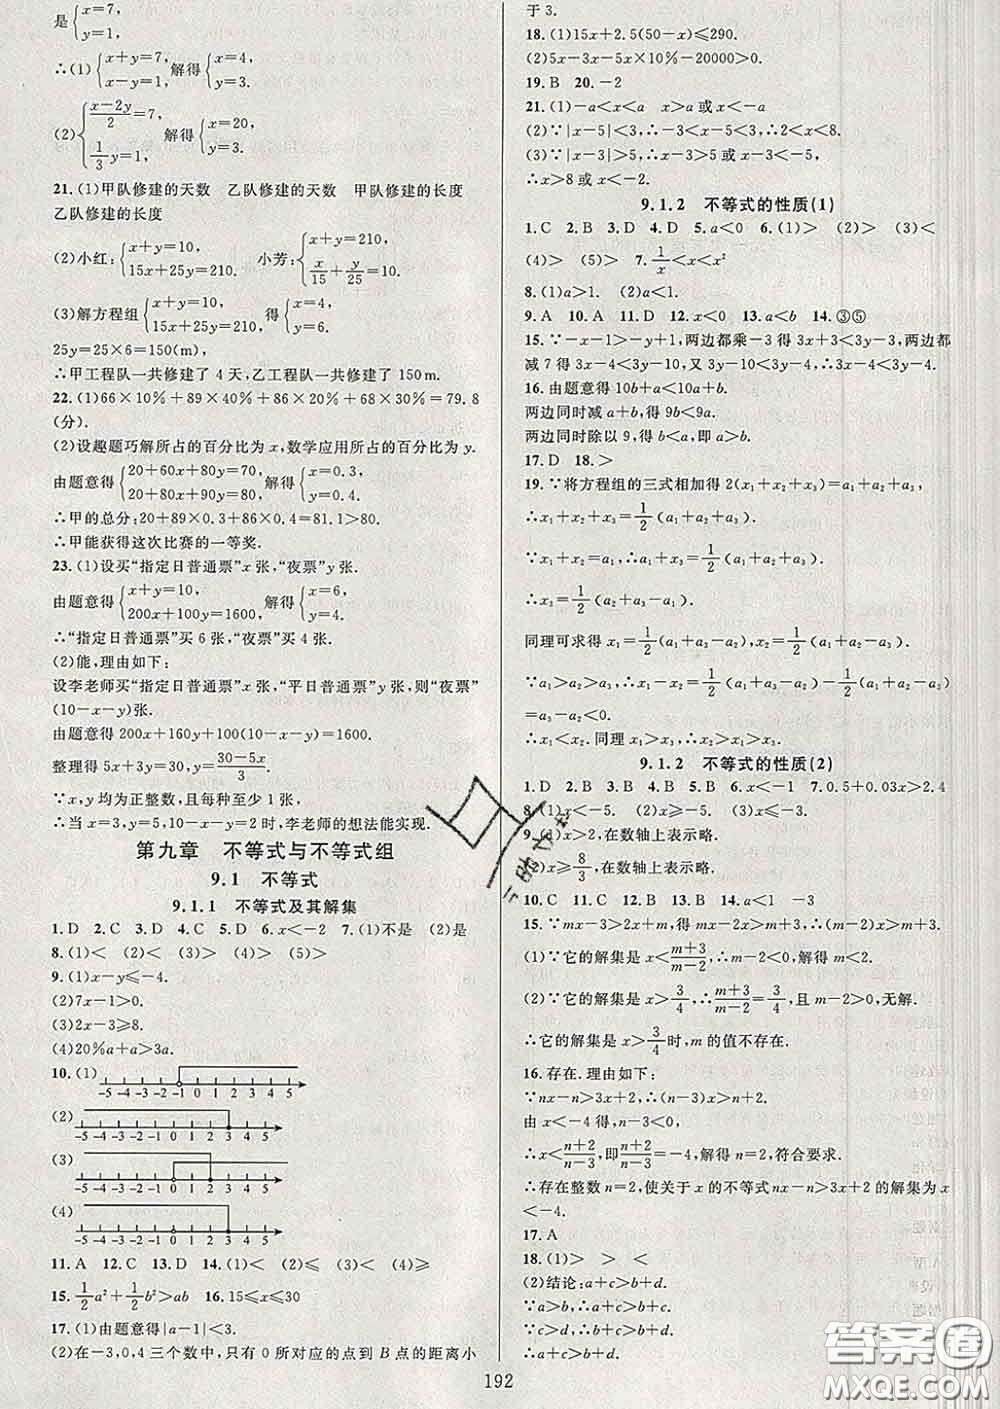 是{x=7, y=1,
∴(1){x+y=7, x−y=1. 解得{x=4, y=3.
(2){(x−2y)/2=7, 1/3 y=1, 解得{x=20, y=3.
21. (1)甲队修建的天数 乙队修建的天数 甲队修建的长度
乙队修建的长度
(2)小红:{x+y=10, 15x+25y=210; 小芳:{x+y=210, x/15+y/25=10.
(3)解方程组{x+y=10, 15x+25y=210, 得{x=4, y=6.
25y=25×6=150(m),
∴甲工程队一共修建了 4 天,乙工程队一共修建了 150 m.
22. (1)66×10%+89×40%+86×20%+68×30%=79.8
(分).
(2)设趣题巧解所占的百分比为 x,数学应用所占的百分比为 y.
由题意得{20+60x+80y=70, 20+80x+90y=80, 解得{x=0.3, y=0.4.
∴甲的总分:20+89×0.3+86×0.4=81.1>80.
∴甲能获得这次比赛的一等奖.
23. (1)设买“指定日普通票”x 张,“夜票”y 张.
由题意得{x+y=10, 200x+100y=1600, 解得{x=6, y=4.
∴“指定日普通票”买 6 张,“夜票”买 4 张.
(2)能,理由如下:
设李老师买“指定日普通票”x 张,“平日普通票”y 张,则“夜票”
(10−x−y)张.
由题意得 200x+160y+100(10−x−y)=1600.
整理得 5x+3y=30,y=(30−5x)/3.
∵x,y 均为正整数,且每种至少 1 张,
∴当 x=3,y=5,10−x−y=2 时,李老师的想法能实现.
第九章 不等式与不等式组
9.1 不等式
9.1.1 不等式及其解集
1. D 2. C 3. D 4. C 5. D 6. x<−2 7. (1)不是 (2)是
8. (1)< (2)< (3)> (4)> (5)>
9. (1)x−y≤−4.
(2)7x−1>0.
(3)2x−3≥8.
(4)20%a+a>3a.
10. (1) −5 −4 −3 −2 −1 0 1 2 3 4 5
(2) −5 −4 −3 −2 −1 0 1 2 3 4 5
(3) −5 −4 −3 −2 −1 0 1 2 3 4 5
(4) −5 −4 −3 −2 −1 0 1 2 3 4 5
11. A 12. C 13. D 14. (1)< (2)≤ (3)< (4)≤
15. 1/2 a²+1/2 b²>ab 16. 15≤x≤30
17. (1)由题意得|a−1|<3.
(2)在−3,0,4 三个数中,只有 0 所对应的点到 B 点的距离小
于 3.
18. (1)15x+2.5(50−x)≤290.
(2)5x−3x−5x×10%−20000>0.
19. B 20. −2
21. (1)−a<x<a x>a 或 x<−a
(2)∵|x−5|<3,∴−3<x−5<3,∴2<x<8.
(3)∵|x−3|>5,∴x−3>5 或 x−3<−5.
∴x>8 或 x<−2.
9.1.2 不等式的性质(1)
1. C 2. B 3. D 4. D 5. a<0 6. (1)> (2)> (3)<
(4)> (5)> 7. 1/x<x<x²
8. (1)a>1. (2)a<1.
9. A 10. A 11. D 12. x<0 13. a<b 14. ③⑤
15. ∵−x−1>−y+1,两边都乘−3 得 3x+3<3y−3,两边都
减 7 得 3x−4<3y−10,又 3y−10<3y−4,∴3x−4<3y−4.
16. 由题意得 10b+a<10a+b.
两边同时减 a+b,得 9b<9a.
两边同时除以 9,得 b<a,即 a>b.
17. D 18. >
19. ∵将方程组的三式相加得 2(x₁+x₂+x₃)=a₁+a₂+a₃,
∴x₁+x₂+x₃=1/2(a₁+a₂+a₃).
∵x₁+x₂=a₁,∴a₁+x₃=1/2(a₁+a₂+a₃),
∴x₃=1/2(a₂+a₃−a₁).
同理可求得 x₁=1/2(a₁+a₃−a₂),x₂=1/2(a₁+a₂−a₃).
∵a₁>a₂>a₃,∴x₁−x₂=1/2(a₁+a₃−a₂)−1/2(a₁+a₂−a₃)
=a₃−a₂<0.
∴x₁<x₂. 同理 x₁>x₃,∴x₂>x₁>x₃.
9.1.2 不等式的性质(2)
1. D 2. B 3. B 4. B 5. B 6. x<−1 7. 0.5+0.03x>2.4
8. (1)x<−5. (2)x≥−5. (3)x<−5.
9. (1)x>2,在数轴上表示略.
(2)x≥8/3,在数轴上表示略.
10. C 11. C 12. B 13. B 14. a<1 −3
15. ∵mx−3>2x+m,∴移项得 mx−2x>m+3,∴(m−2)x>m+3.
(1)∵它的解集是 x<(m+3)/(m−2),∴m−2<0,解得 m<2.
(2)∵它的解集是 x>3/4,∴(m+3)/(m−2)=3/4,且 m−2>0,无解.
∴它的解集是 x>3/4时,m 的值不存在.
16. 存在. 理由如下:
∵nx−n>3x+2,∴(n−3)x>n+2.
由 x<−4 得,n−3<0,∴n<3.
∴x<(n+2)/(n−3),即(n+2)/(n−3)=−4,解得 n=2,符合要求.
∴存在整数 n=2,使关于 x 的不等式 nx−n>3x+2 的解集为 x
<−4.
17. A
18. (1)> > > <
(2)结论:a+c>b+d.
∵a>b,∴a+c>b+c.
∵c>d,∴b+c>b+d.
∴a+c>b+d.
192
答案圈
MXQE.COM